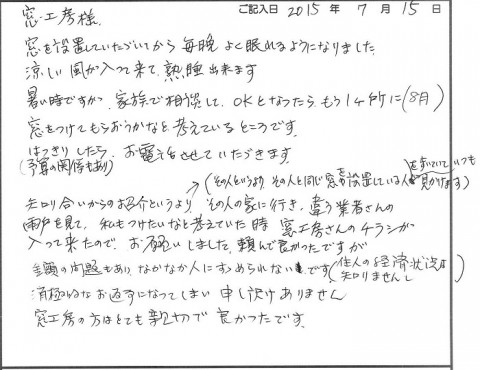 ご記入日 2015 年 7 月 15 日
窓工房様
窓を設置していただいてから 毎晩 よく眠れるようになりました
涼しい風が入って来て、熟睡 出来ます
暑い時ですが、家族で相談して、OKとなったら、もう1ヶ所に(8月)
窓をつけてもらおうかなと 考えているところです。
はっきりしたら、お電話させていただきます。
(予算の関係もあり)
(その人というより その人と同じ窓を設置している人
をきいていていつも見かけます)
知り合いからの紹介というより、その人の家に行き、違う業者さんの
雨戸を見て、私もつけたいなと考えていた時 窓工房さんのチラシが
入って来たので、お願いしました。頼んで良かったですが
金額の問題もあり、なかなか人にすすめられないです(他人の経済状況は知りませんし)
消極的なお返事になってしまい 申し訳けありません
窓工房の方はとても親切で 良かったです。